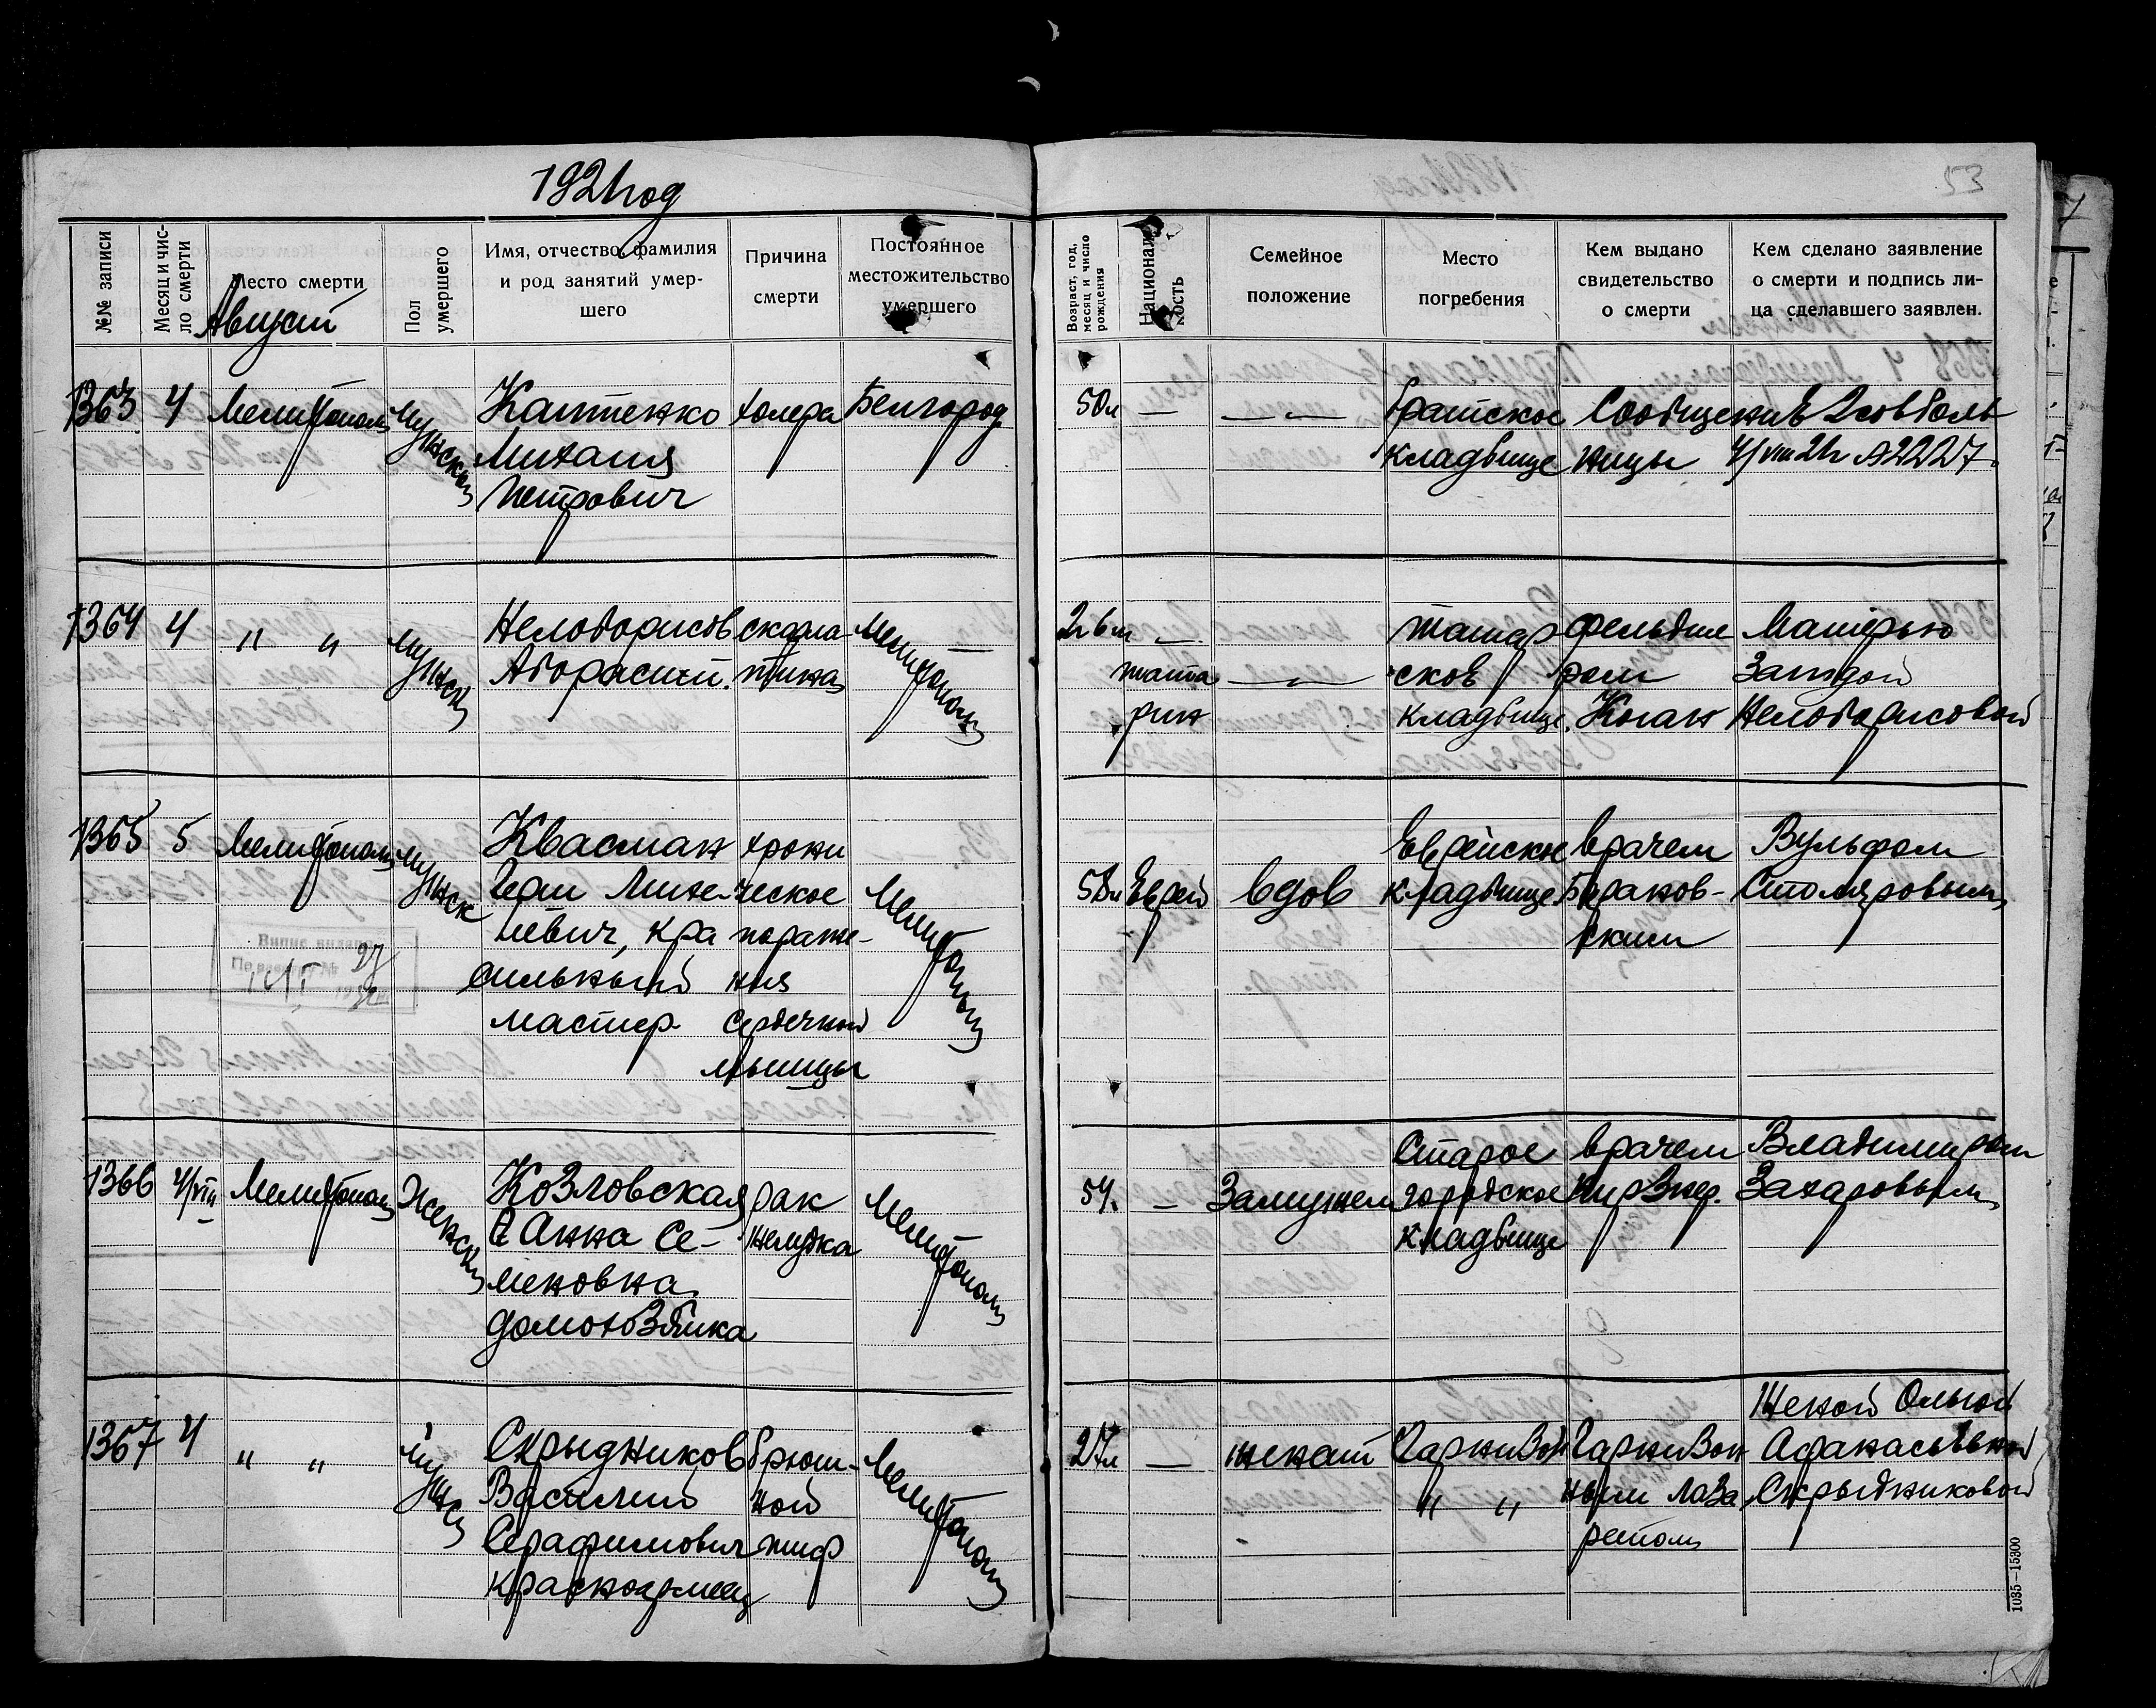 1921 год
53
№№ записи
Месяц и чис-
ло смерти
Место смерти
Пол
умершего
Имя, отчество, фамилия
и род занятий умер-
шего
Причина
смерти
Постоянное
местожительство
умершего
Возраст, год,
месяц и число
рождения
Националь-
ность
Семейное
положение
Место
погребения
Кем выдано
свидетельство
о смерти
Кем сделано заявление
о смерти и подпись ли-
ца сделавшего заявлен.
Август
1363 4 Мелитополь мужской
Михаил
Петрович
холера
Белгород
50 л — —"—
Братское
кладбище
Сообщение 2 совболь
ницы 4/VIII 21 г № 2227
1364 4 " " мужск
скарла
тина
Мелитополь
2 г 6 м —
тата
рин
—"—
татар
сков
кладбище
фельдше
ром
Коган
Матерью
1365 5 Мелитополь мужск
Квасман
Михе-
левич, кра
сильный
мастер
хрони
ческое
пораже-
ния
сердечной
мышцы
Мелитополь
58 л Еврей вдов
Еврейское
кладбище
врачем
Бараков-
ским
Вульфом
Столяровым
1366 4/VIII Мелитополь Женск
Козловская
Анна Се-
меновна
домохозяйка
рак
желудка
Мелитополь
54 — Замужем
Старое
городское
кладбище
врачем
Кирзнер.
Владимиром
Захаровым
1367 4 " " мужск
Скрыдников
Василий
Серафимович
красноармеец
брюш-
ной
тиф
Мелитополь
27 л — женат
Гарнизон
" "
Гарнизон
ным лаза
ретом
Женой Ольгой
Афанасьевной
Скрыдниковой
1035—15300